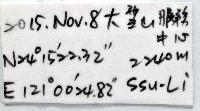 2015. Nov. 8 大雪山服務
中15
N24°15'22.32" 2240m
E 121°00'24.82" SSU-Li